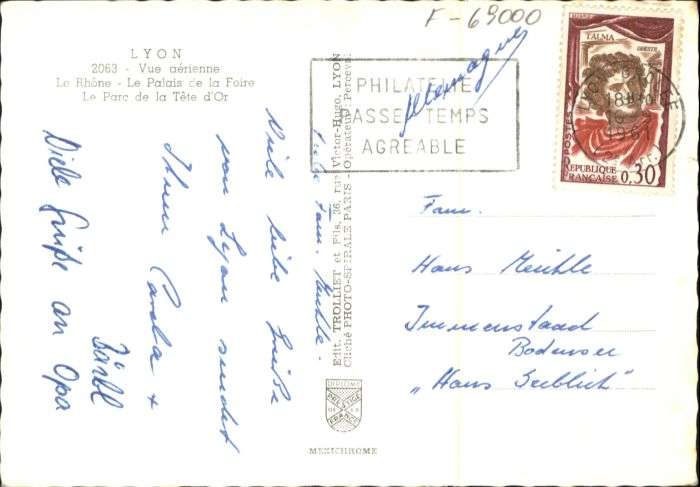 F-69000
LYON
2063 - Vue aérienne
Le Rhône - Le Palais de la Foire
Le Parc de la Tête d'Or
PHILATELIE
PASSE-TEMPS
AGREABLE
Allemagne
LYON
18H30
1961
TALMA
ORESTE
POSTES
REPUBLIQUE
FRANÇAISE
0,30
Edit. TROLLIET et Fils, 36, rue Victor-Hugo, LYON
Cliché PHOTO-SPIRALE PARIS - Opérateur: Perceval
Liebe Fam.
Viele liebe Grüße
von Lyon sendet
Ihnen
+
Bärbl
Viele Grüße an Opa
Fam.
Hans
Immenstaad
Bodensee
„Haus Seeblick"
DIPLOME
PRESTIGE
FRANCE
MEXICHROME